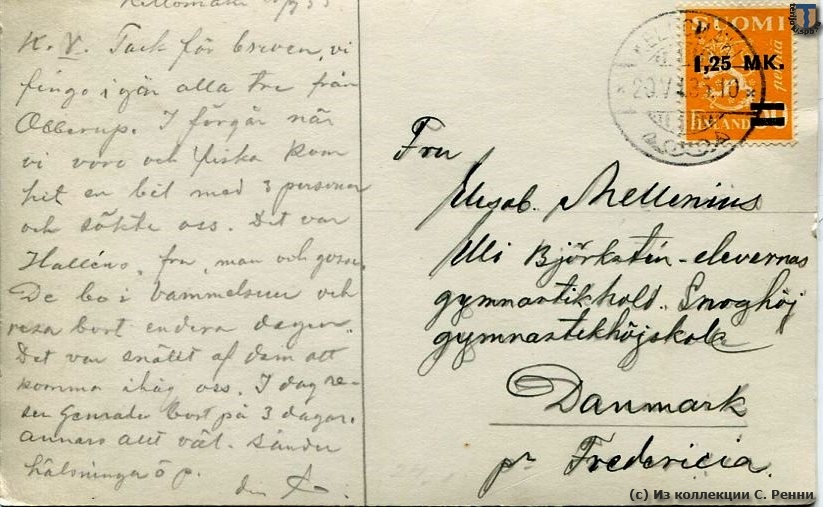 K. V. Tack för breven, vi
fingo igår alla tre från
Ollerup. I förgår när
vi voro och fiska kom
hit en bil med 3 personer
och sökte oss. Det var
Halléns, fru, man och gosse.
De bo i Vammelsuu och
resa bort endera dagen.
Det var snällt af dem att
komma ihåg oss. I dag re-
ser bort på 3 dagar.
annars allt väl. Sänder
hälsningar
SUOMI
1,25 MK.
FINLAND
Fru
Elisab. Mellenius
Elli Björkstén-elevernas
gymnastikhold. Snoghöj
gymnastikhöjskole
Danmark
pr Fredericia.
(c) Из коллекции С. Ренни